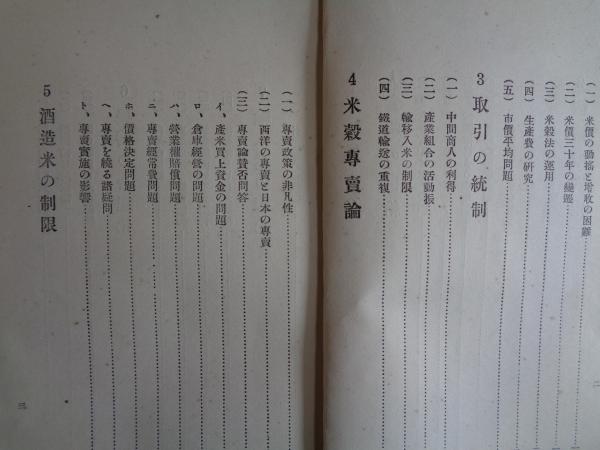 (一) 米價の動搖と增收の困難
(二) 米價三十年の變遷
(三) 米穀法の運用
(四) 生產費の研究
(五) 市價平均問題
3 取引の統制
(一) 中間商人の利得
(二) 產業組合の活動振
(三) 輸移入米の制限
(四) 鐵道輸送の重複
4 米穀專賣論
二
(一) 專賣政策の非凡性
(二) 西洋の專賣と日本の專賣
(三) 專賣論贊否問答
イ、產米買上資金の問題
ロ、倉庫經營の問題
ハ、營業補賠償問題
ニ、專賣經常費問題
ホ、價格決定問題
ヘ、專賣を繞る諸疑問
ト、專賣實施の影響
5 酒造米の制限
三